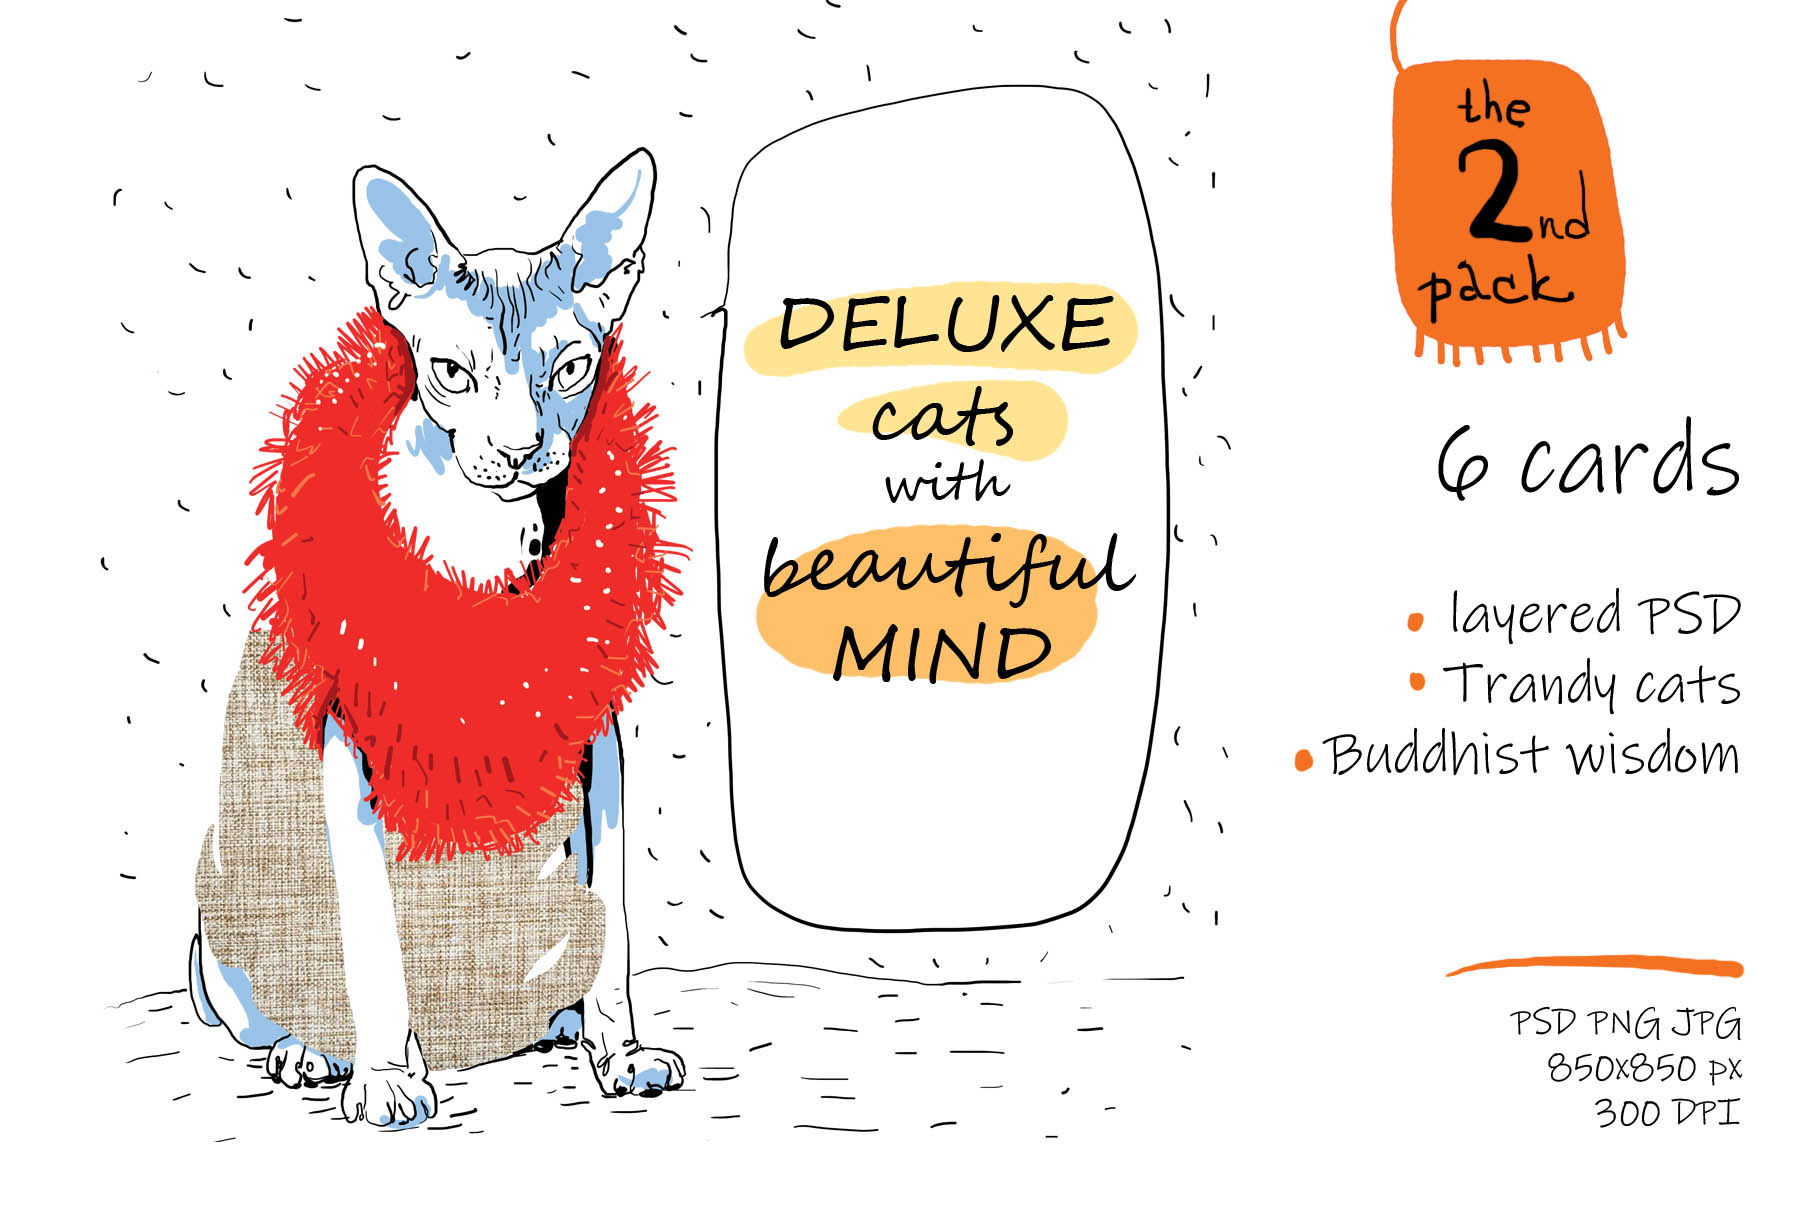 DELUXE
cats
with
beautiful
MIND
the
2nd
pack
6 cards
• layered PSD
• Trandy cats
• Buddhist wisdom
PSD PNG JPG
850x850 px
300 DPI